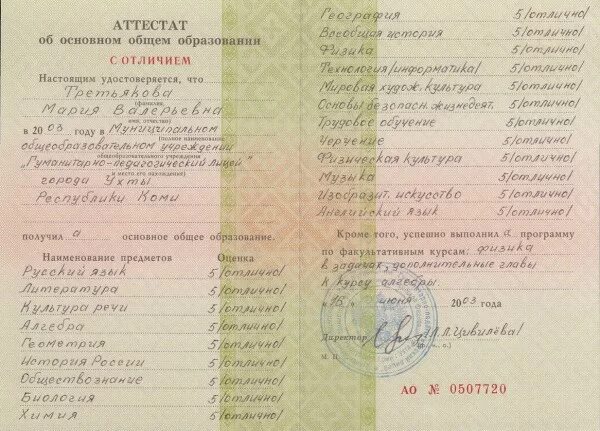 АТТЕСТАТ
об основном общем образовании
С ОТЛИЧИЕМ
Настоящим удостоверяется, что
Третьякова
(фамилия,
Мария Валерьевна
имя, отчество)
в 2003 году в Муниципальном
(полное наименование
общеобразовательном учреждении
общеобразовательного учреждения
"Гуманитарно-педагогический лицей"
и место его нахождения)
города Ухты
Республики Коми
получил а основное общее образование.
Наименование предметов Оценка
Русский язык 5/отлично/
Литература 5/отлично/
Культура речи 5/отлично/
Алгебра 5/отлично/
Геометрия 5/отлично/
История России 5/отлично/
Обществознание 5/отлично/
Биология 5/отлично/
Химия 5/отлично/
География 5/отлично/
Всеобщая история 5/отлично/
Физика 5/отлично/
Технология/информатика/ 5/отлично/
Мировая худож. культура 5/отлично/
Основы безопасн. жизнедеят. 5/отлично/
Трудовое обучение 5/отлично/
Черчение 5/отлично/
Физическая культура 5/отлично/
Музыка 5/отлично/
Изобразит. искусство 5/отлично/
Английский язык 5/отлично/
Кроме того, успешно выполнил а программу
по факультативным курсам: физика
в задачах, дополнительные главы
к курсу алгебры
"16" июня 2003 года
Директор Л.Л.Цивилёва/
М. П.
АО № 0507720